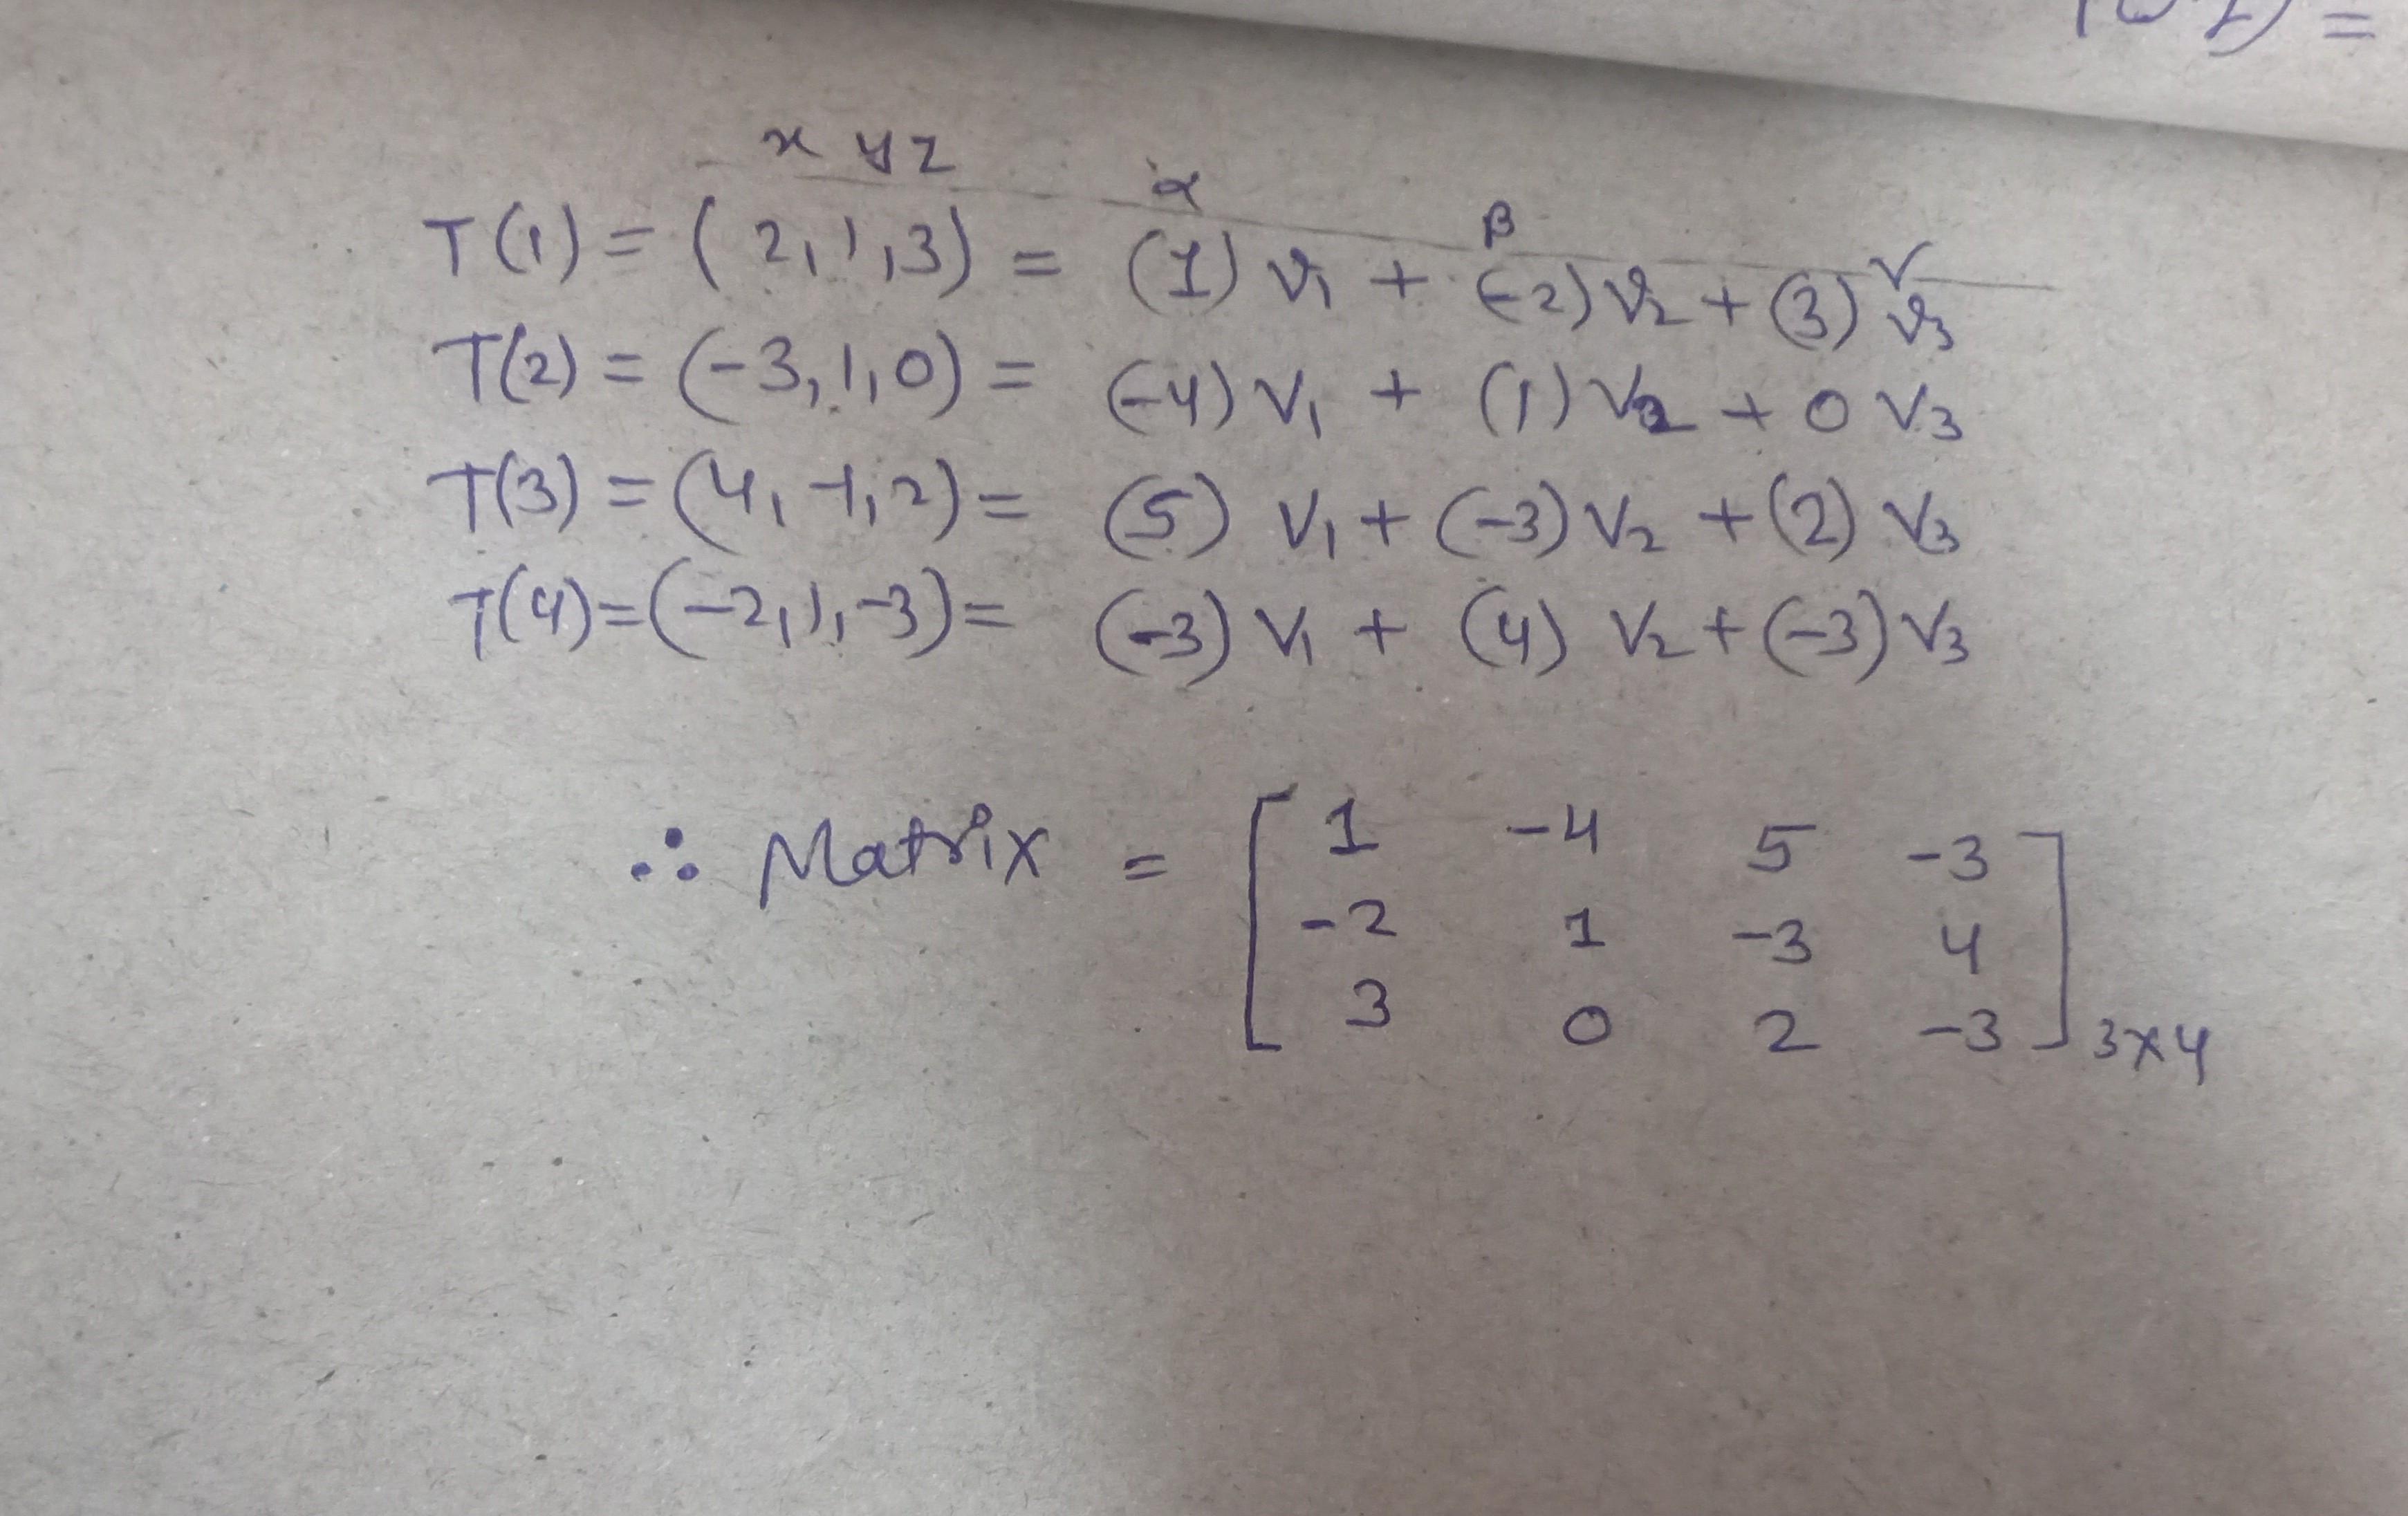 x y z α β γ
T(1) = (2,1,3) = (1) v₁ + (-2) v₂ + (3) v₃
T(2) = (-3,1,0) = (-4) v₁ + (1) v₂ + 0 v₃
T(3) = (4,-1,2) = (5) v₁ + (-3) v₂ + (2) v₃
T(4) = (-2,1,-3) = (-3) v₁ + (4) v₂ + (-3) v₃
∴ Matrix = [ 1 -4 5 -3
-2 1 -3 4
3 0 2 -3 ] 3x4